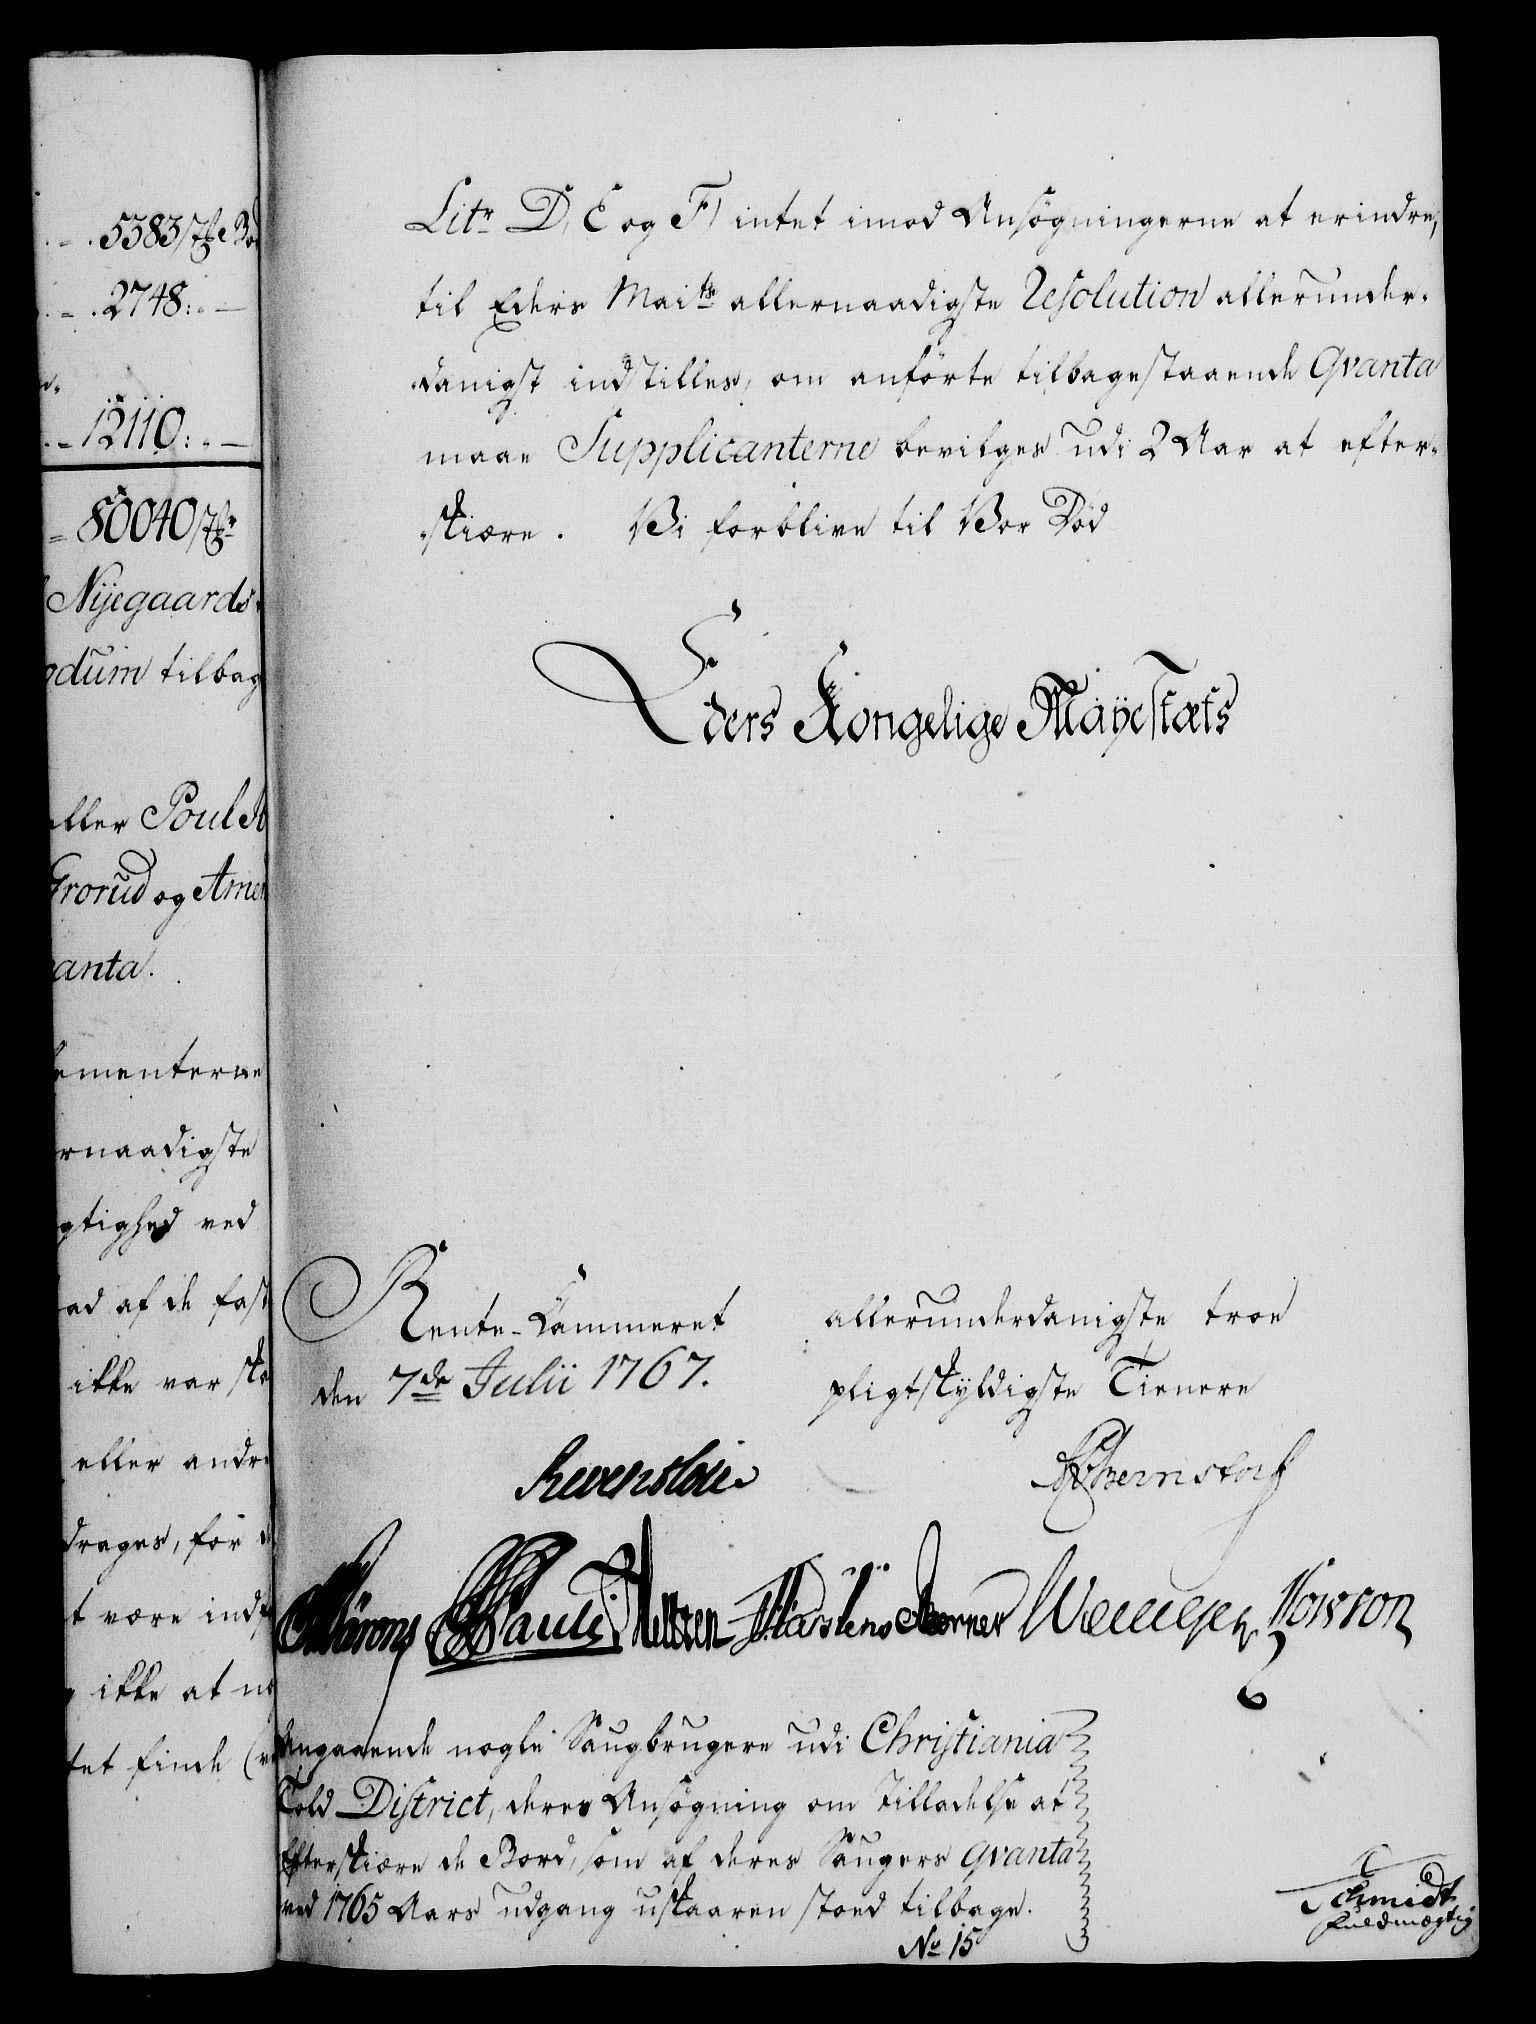 5383/7
2748:. —
12110:. —
80040/7
Nÿegaards
tilbag
eller Poul
Grorud og
ementerne
rnaadigste
gtighed ved
ad af de fast
ikke var
eller andre
drages, for
t være
ikke at
tet finde
Litr D, E og F) intet imod Ansøgningerne at erindre,
til Eders Maits allernaadigste Resolution allerunder-
danigst indstilles, om anførte tilbagestaaende Qvanta
maae Supplicanterne bevilges udi 2 Aar at efter-
skiære. Vi forblive til Vor Død
Eders Kongelige Mayestæts
Rente-Cammeret
den 7de Julii 1767.
allerunderdanigste troe
pligtskyldigste Tienere
Reventlow
Bernstorff
Pauli
Angaaende nogle Saugbrugere udi Christiania
Told District, deres Ansøgning om Tilladelse at
Efterskiære de Bord, som af deres Saugers Qvanta
ved 1765 Aars udgang uskaaren stoed tilbage.
No 15
Schmidt
fuldmægtig